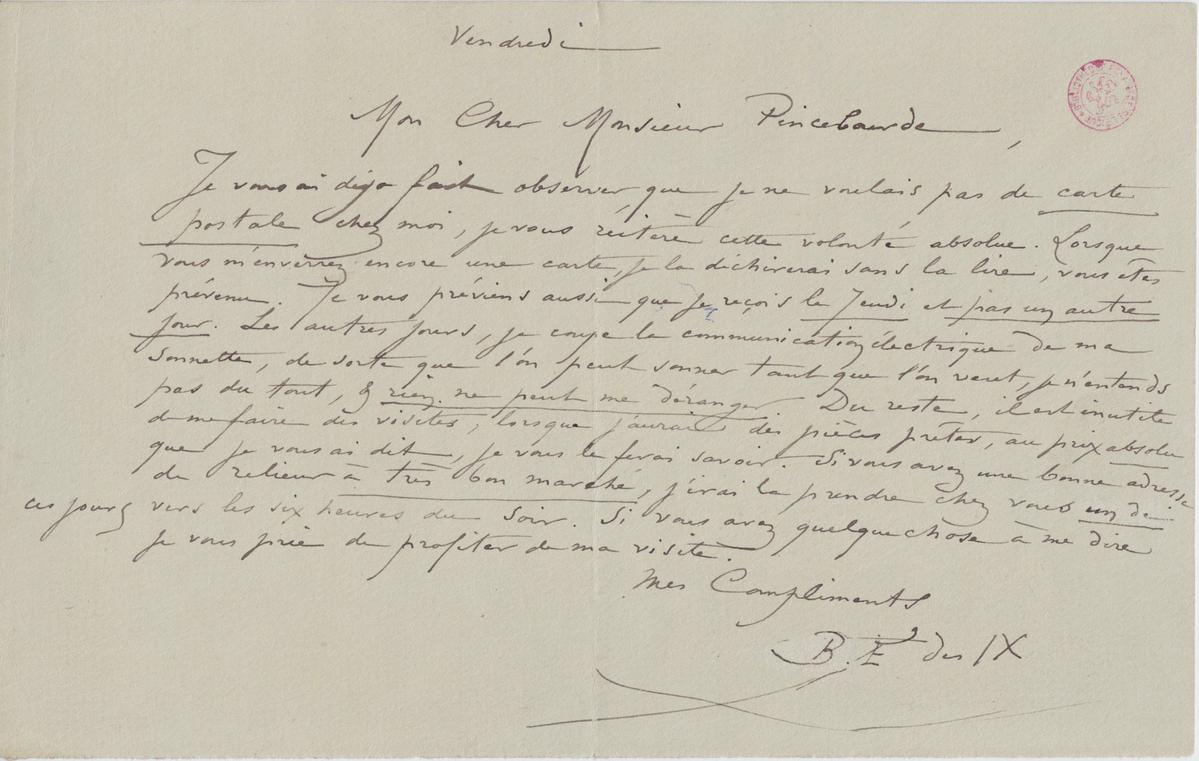 Vendredi
Mon Cher Monsieur Pincebourde,
Je vous ai déja fait observer, que je ne voulais pas de carte
postale chez moi, je vous réitère cette volonté absolue. Lorsque
vous m'enverrez encore une carte, je la déchirerai sans la lire, vous êtes
prévenu. Je vous préviens aussi que je reçois le Jeudi et pas un autre
jour. Les autres jours, je coupe la communication électrique de ma
sonnette, de sorte que l'on peut sonner tant que l'on veut, je n'entends
pas du tout, & rien ne peut me déranger. Du reste, il est inutile
de me faire des visites, lorsque j'aurai des pièces prêtes, au prix absolu
que je vous ai dit, je vous le ferai savoir. Si vous avez une bonne adresse
de relieur à très bon marché, j'irai la prendre chez vous un de
ces jours vers les six heures du soir. Si vous avez quelque chose à me dire
je vous prie de profiter de ma visite.
Mes Compliments
B. E des IX